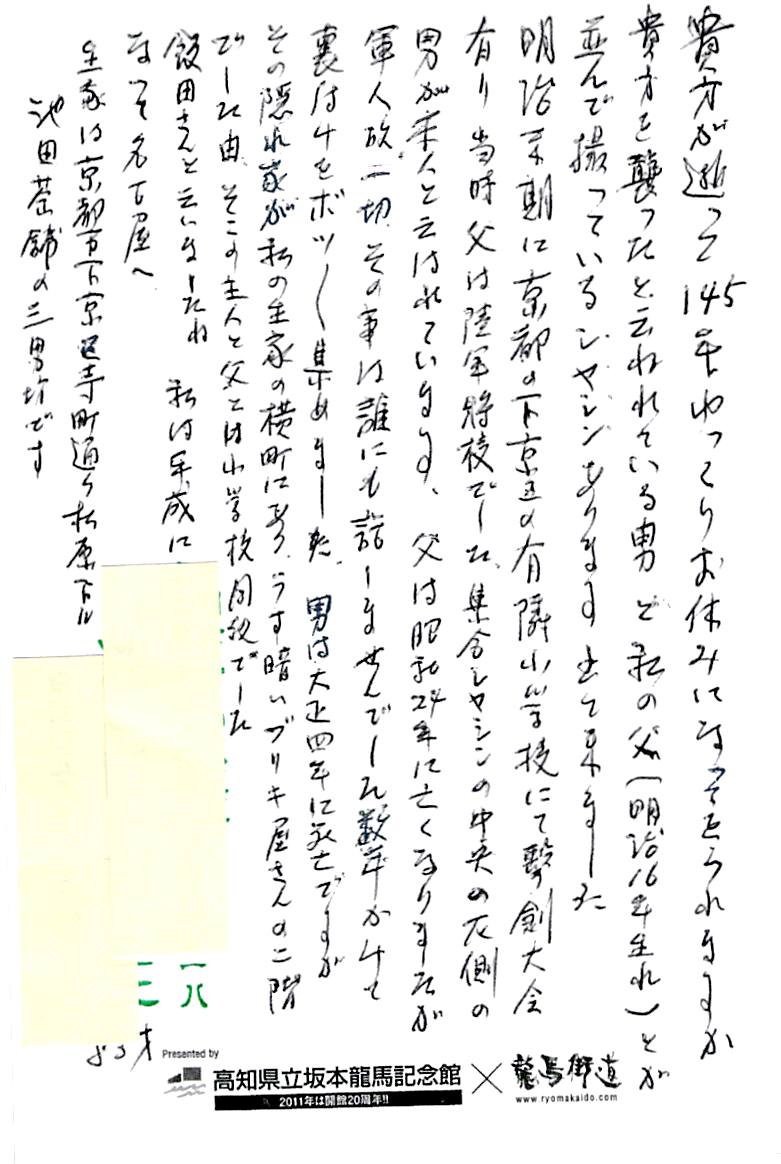 貴方が逝って145年ゆっくりお休みになってをられますか
貴方を襲ったと云われている男と私の父(明治16年生れ)とが
並んで撮っているシャシンあります 出て来ました
明治末期に京都の下京区の有隣小学校にて撃剣大会
有り 当時父は陸軍将校でした、集合シャシンの中央の左側の
男が本人と云はれています、父は昭和24年に亡くなりましたが
軍人故一切、その事は誰にも話しませんでした数年かけて
裏付けをボツ〱集めました、男は大正四年に死亡ですが
その隠れ家が私の生家の横町にあり、うす暗いブリキ屋さんの二階
でした由、そこの主人と父とは小学校同級でした
飯田さんと云いましたね 私は平成に
なって名古屋へ
生家は京都市下京区寺町通り松原下ル
池田 舗の三男坊です
一八
83才
Presented by
高知県立坂本龍馬記念館 × 龍馬街道
2011年は開館20周年!!
www.ryomakaido.com